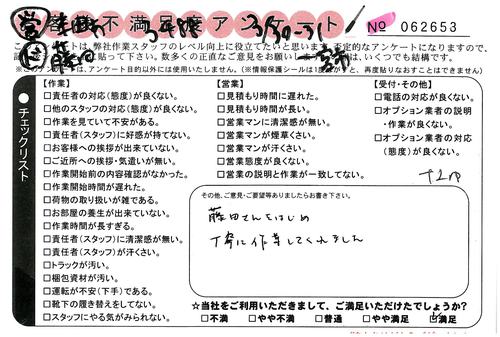 客様不満足度アンケート № 062653
3/30-31
このアンケートは、弊社作業スタッフのレベル向上に役立てたいと思います。否定的なアンケートになりますので、
下さい。数多くの正直なご意見をお願いします。は、いくつでも結構です。
(※このアンケートは、アンケート目的以外には使用いたしません。)(※情報保護シールは1度はがすと、再度貼りなおすことはできません)
チェックリスト
【作業】
□責任者の対応(態度)が良くない。
□他のスタッフの対応(態度)が良くない。
□作業を見ていて不安がある。
□責任者(スタッフ)に好感が持てない。
□お客様への挨拶が出来ていない。
□ご近所への挨拶・気遣いが無い。
□作業開始前の内容確認がなかった。
□作業開始時間が遅れた。
□荷物の取り扱いが雑である。
□お部屋の養生が出来ていない。
□作業時間が長すぎる。
□責任者(スタッフ)に清潔感が無い。
□責任者(スタッフ)が汗くさい。
□トラックが汚い。
□梱包資材が汚い。
□運転が不安(下手)である。
□靴下の履き替えをしてない。
□スタッフにやる気がみられない。
【営業】
□見積もり時間に遅れた。
□見積もり時間が長い。
□営業マンに清潔感が無い。
□営業マンが煙草くさい。
□営業マンが汗くさい。
□営業態度が良くない。
□営業の説明と作業が一致してない。
【受付・その他】
□電話の対応が良くない。
□オプション業者の説明
・作業が良くない。
□オプション業者の対応
(態度)が良くない。
その他、ご意見・ご要望等ありましたらお書き下さい。
藤田さんをはじめ
丁寧に作業してくれました
☆当社をご利用いただきまして、ご満足いただけたでしょうか?
□不満 □やや不満 □普通 □やや満足 ☑満足